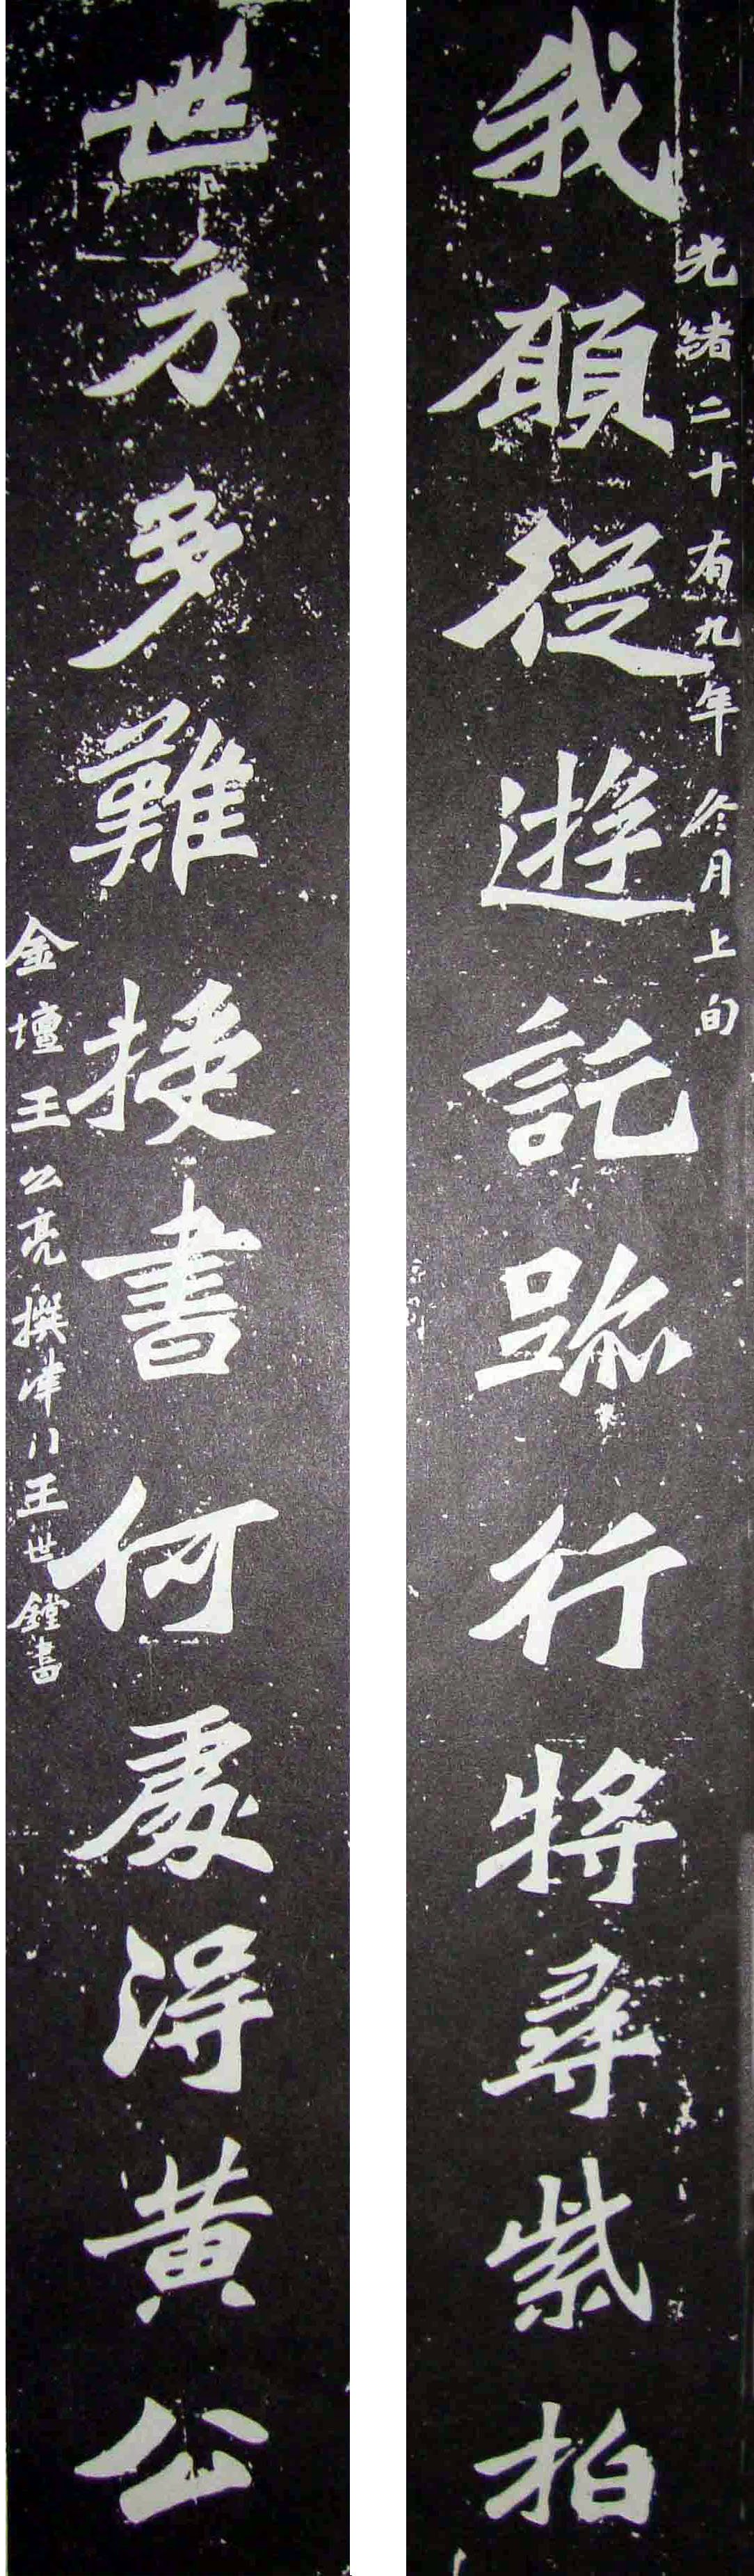 光緒二十有九年冬月上旬
我願從遊託跡行將尋紫柏
世方多難授書何處得黃公
金壇王公亮撰津门王世鏜書